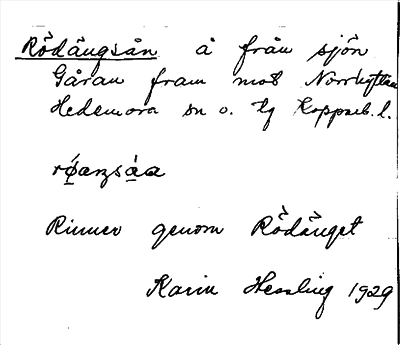 Rödängsån å från sjön
Gåran fram mot Norrhyttan
Hedemora sn o. tg Kopparb. l.
rǿ̜aŋsá̜a
Rinner genom Rödänget
Karin Hessling 1929